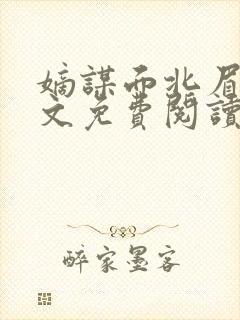 嫡謀西北眉
文免費閱讀
醉家墨客